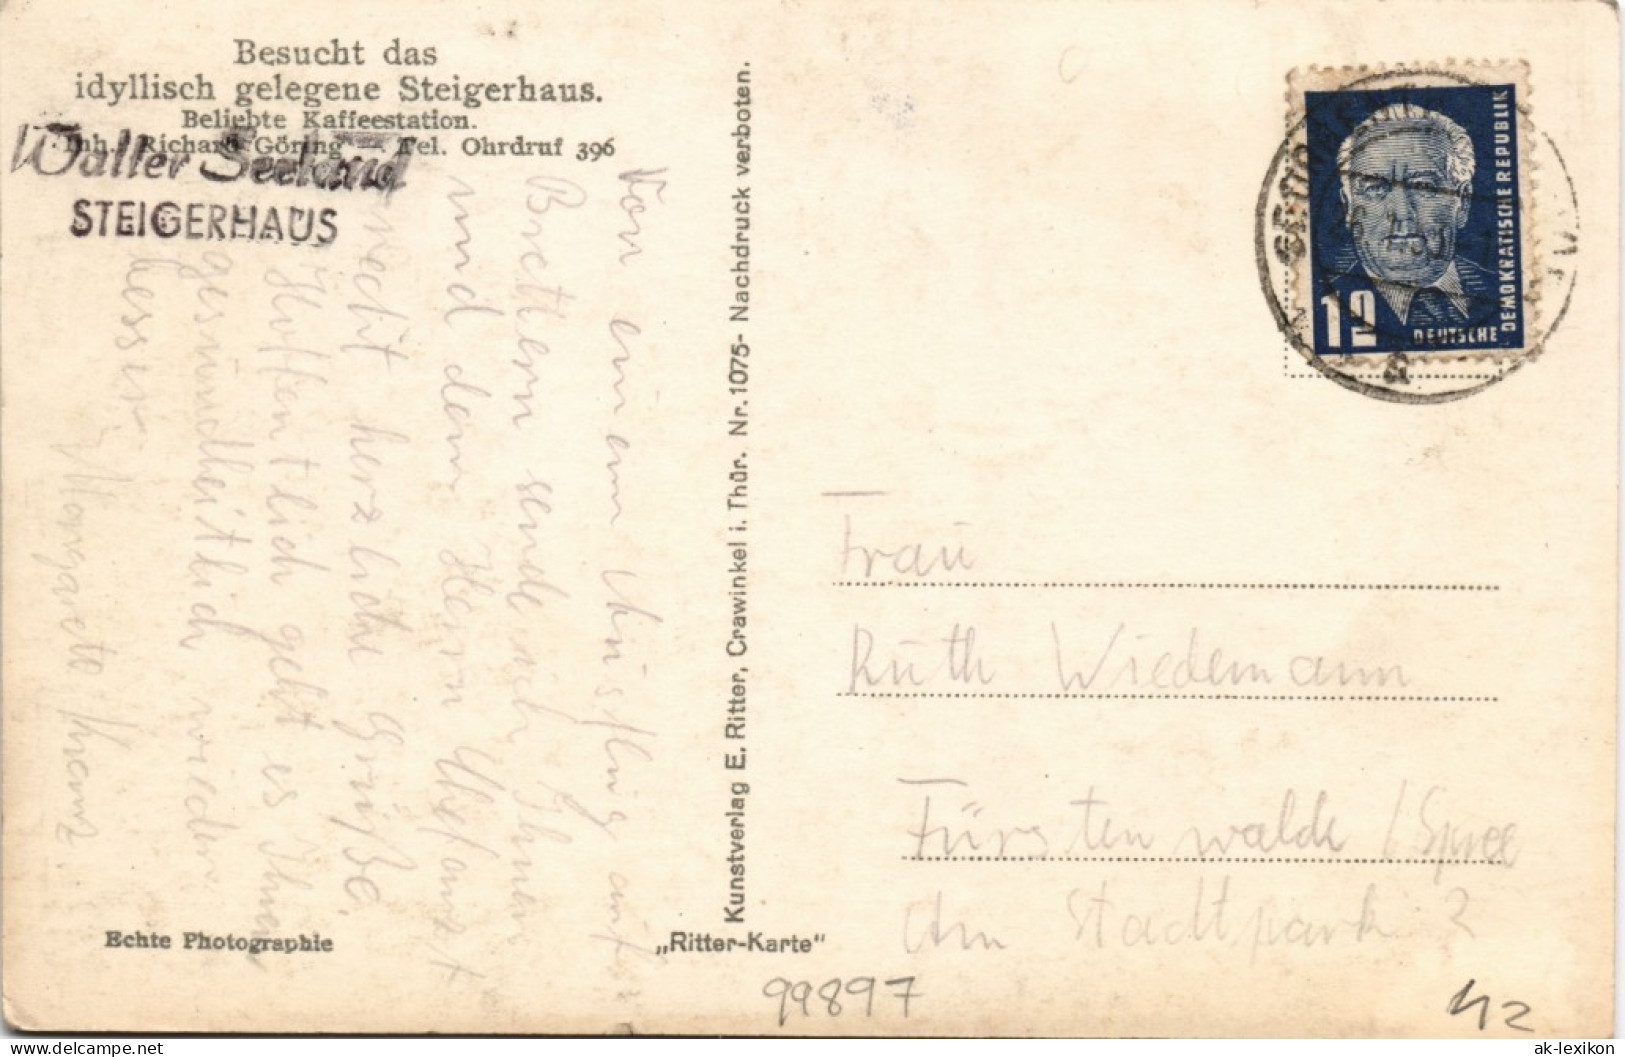 Besucht das
idyllisch gelegene Steigerhaus.
Beliebte Kaffeestation.
Inh. Richard Göring — Tel. Ohrdruf 396
Walter Seeland
STEIGERHAUS
Von einem Ausflug auf
Brettern sende ich Ihnen
und dem Herrn
recht herzliche Grüße.
Hoffentlich geht es Ihnen
gesundheitlich wieder
besser.
Margarete
Echte Photographie
Kunstverlag E. Ritter, Crawinkel i. Thür. Nr. 1075- Nachdruck verboten.
„Ritter-Karte“
12
DEUTSCHE
DEMOKRATISCHE REPUBLIK
Frau
Ruth Wiedemann
Fürstenwalde / Spree
Am Stadtpark 2
99897
42
akpool-free
ak-lexikon